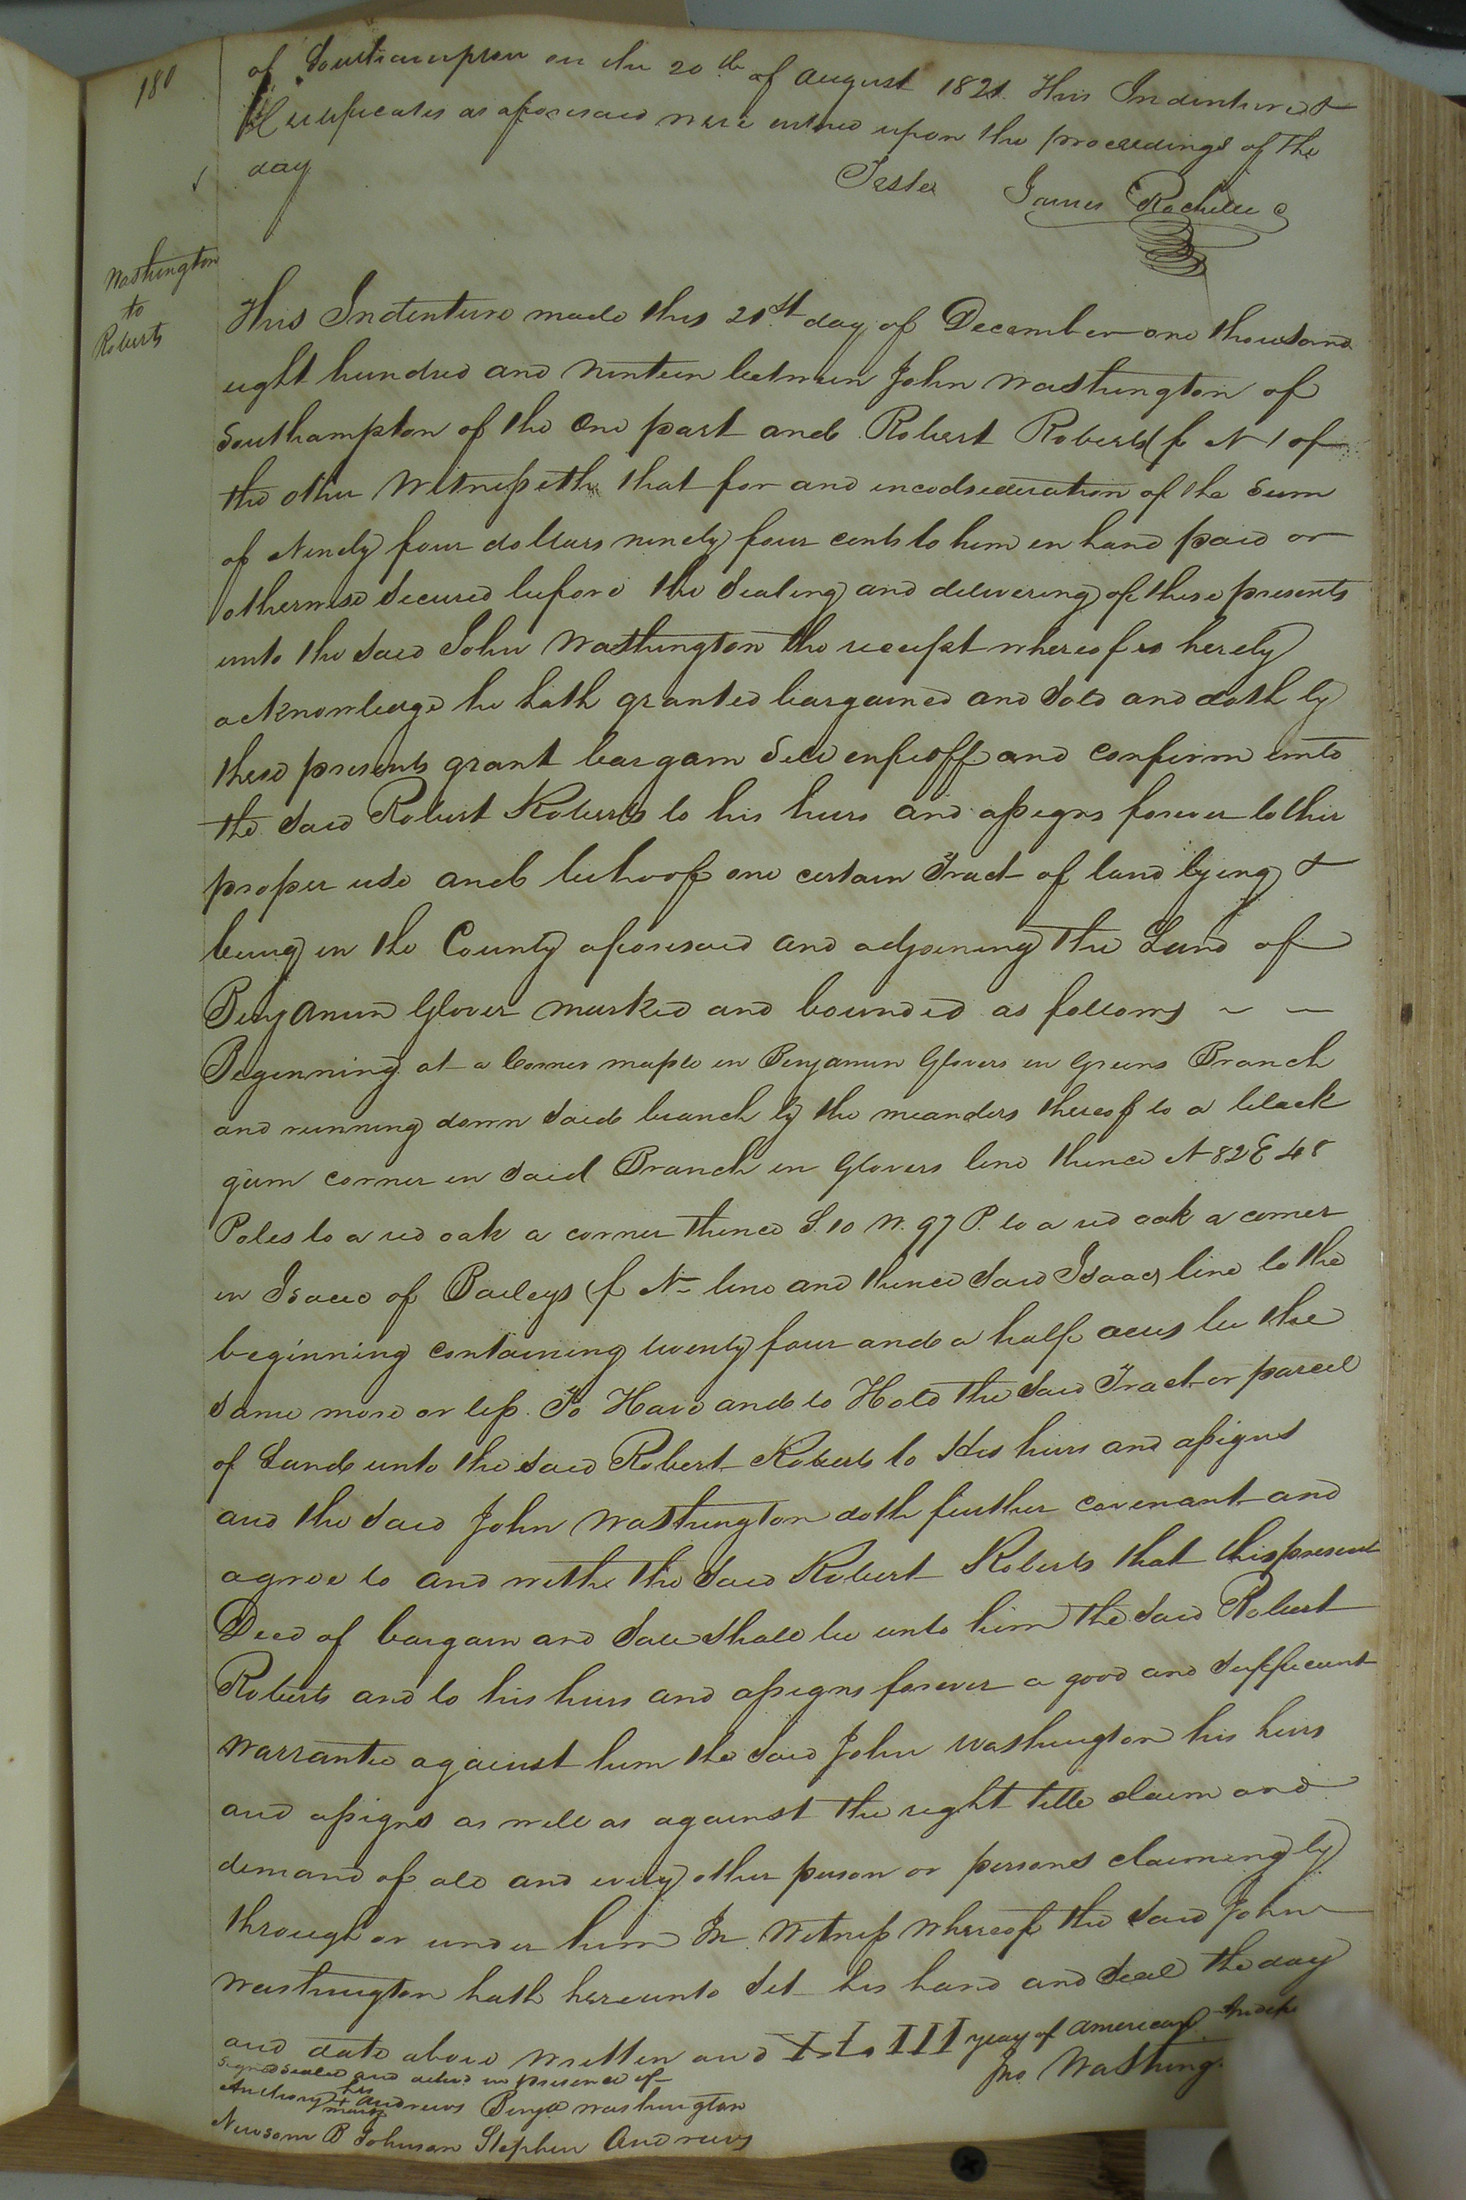 180
of Southampton on the 20th of August 1821 This Indenture &
Certificates as aforesaid were entered upon the proceedings of the
day
Teste James Rochelle C
Washington
to
Roberts
This Indenture made this 21st day of December one thousand
eight hundred and ninteen between John Washington of
Southampton of the one part and Robert Roberts (f N) of
the other Witnesseth that for and in consideration of the Sum
of Ninety four dollars ninety four cents to him in hand paid or
otherwise Secured before the Sealing and delivering of these presents
unto the said John Washington the receipt whereof is hereby
acknowledge he hath granted bargained and Sold and doth by
these presents grant bargain Sell enfeoff and confirm unto
the said Robert Roberts to his heirs and assigns forever to their
proper use and behoof one certain Tract of land lying &
being in the County aforesaid and adjoining the Land of
Benjamin Glover marked and bounded as follows
Beginning at a Corner maple in Benjamin Glovers in Greens Branch
and running down said branch by the meanders thereof to a black
gum corner in said Branch in Glovers line thence N 82 E 48
Poles to a red oak a corner thence S. 10 W. 97 P. to a red oak a corner
in Isaac of Baileys (f N line and thence said Isaacs line to the
beginning containing twenty four and a half acres be the
same more or less. To Have and to Hold the said Tract or parcel
of Land unto the said Robert Roberts to His heirs and assigns
and the said John Washington doth further covenant and
agree to and with the said Robert Roberts that this present
Deed of bargain and Sale shall be unto him the said Robert
Roberts and to his heirs and assigns forever a good and sufficient
warrantee against him the said John Washington his heirs
and assigns as well as against the right title claim and
demand of all and every other person or persons claiming by
through or under him In Witness Whereof the said John
Washington hath hereunto Set his hand and Seal the day
and date above written and year of American
Signed Sealed and delivd in presence of Jno Washing
Anthony his + mark Andrews Benja Washington
Newsom B Johnson Stephen Andrews